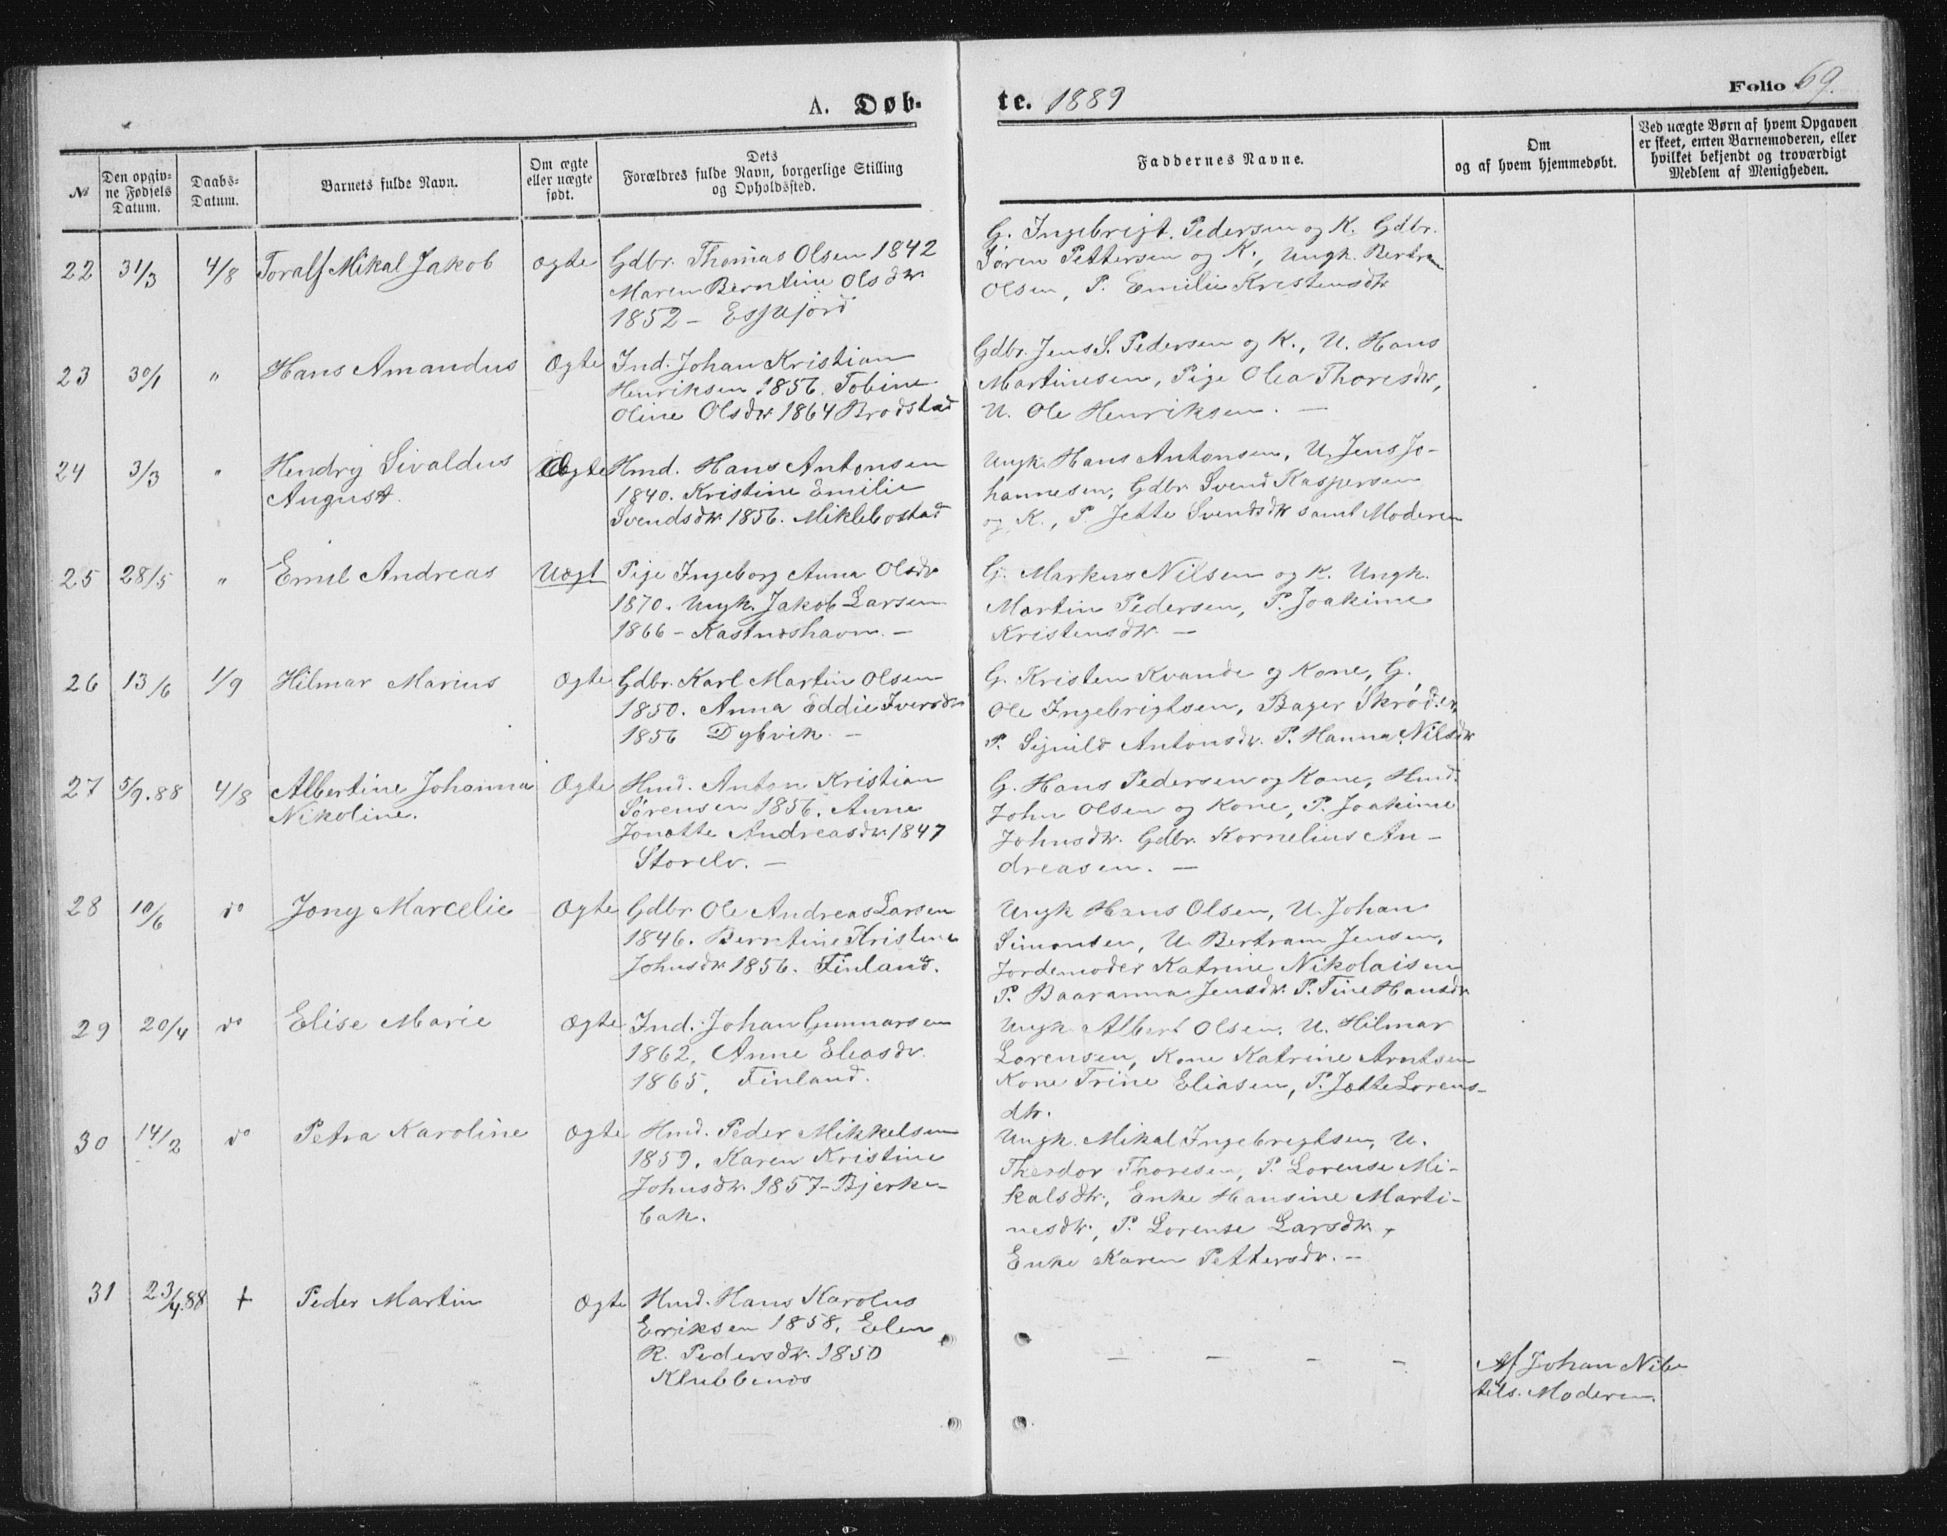 A. Døb-
te. 1889
Folio 69.
№
Den opgivne Fødsels Datum.
Daabs-Datum.
Barnets fulde Navn.
Om ægte eller uægte født.
Dets Forældres fulde Navn, borgerlige Stilling og Opholdssted.
Faddernes Navne.
Om og af hvem hjemmedøbt.
Ved uægte Børn af hvem Opgaven er skeet, enten Barnemoderen, eller hvilket bekjendt og troværdigt Medlem af Menigheden.
22 31/3 4/8 Toralf Mikal Jakob Ægte
Gdbr. Thomas Olsen 1842
Maren Berntine Olsdtr
1852 –
G. Ingebrigt Pedersen og K. Gdbr.
Søren Pettersen og K., Ungk. Bertram
Olsen, P. Emilie Kristensdtr
23 30/1 " Hans Amandus Ægte
Ind. Johan Kristian
Henriksen 1856. Tobine
Oline Olsdtr 1864 Brødstad
Gdbr. Jens S. Pedersen og K., U. Hans
Martinesen, Pige Olea Thoresdtr,
U. Ole Henriksen. –
24 3/3 " Hendry Sivaldus
August. Ægte
Hmd. Hans Antonsen
1840. Kristine Emilie
Svendsdtr 1856. Miklebostad
Ungk. Hans Antonsen, U. Jens Jo-
hannesen, Gdbr Svend Kaspersen
og K., P. Jette Svendsdtr samt Moderen
25 28/5 " Emil Andreas Uægt
Pige Ingeborg Anna Olsdtr
1870. Ungk. Jakob Larsen
1866 – Kastnæshavn. –
G. Markus Nilsen og K. Ungk.
Martin Pedersen, P. Joakime
Kristensdtr. –
26 13/6 1/9 Hilmar Marius Ægte
Gdbr. Karl Martin Olsen
1850. Anna Eddie Iversdtr
1856 Dybvik. –
G. Kristen Kvande og Kone, G.
Ole Ingebrigtsen, Bager Skrøder,
P. Signild Antonsdtr. P. Hanna Nilsdtr
27 5/9.88 4/8 Albertine Johanna
Nikoline. Ægte
Hmd. Anton Kristian
Sørensen 1856. Anne
Jonette Andreasdtr 1847
Storelv. –
G. Hans Pedersen og Kone, Hmd.
John Olsen og Kone, P. Joakime
Johnsdtr. Gdbr. Kornelius An-
dreasen. –
28 10/6 do Jony Marcelie Ægte
Gdbr Ole Andreas Larsen
1846. Berntine Kristine
Johnsdtr 1856. Finland.
Ungk Hans Olsen, U. Johan
Simonsen, U. Bertram Jensen,
Jordemoder Katrine Nikolaisen
P. Baaranna Jensdtr. P. Tine Hansdtr
29 20/4 do Elise Marie Ægte
Ind. Johan Gunnarsen
1862, Anne Eleasdtr.
1865, Finland.
Ungk. Albert Olsen, U. Hilmar
Lorensen, Kone Katrine Arntsen
Kone Trine Eliasen, P. Jette Lorens-
dtr.
30 14/2 do Petra Karoline Ægte
Hmd. Peder Mikkelsen
1859, Karen Kristine
Johnsdtr. 1857 – Bjerke-
bak.
Ungk. Mikal Ingebrigtsen, U.
Theodor Thoresen, P. Lorense Mi-
kalsdtr, Enke Hansine Marti-
nesdtr, P. Lorense Larsdtr,
Enke Karen Pettersdtr. –
31 23/4.88 + Peder Martin Ægte
Hmd. Hans Karolus
Eriksen 1858, Elen
R. Pedersdtr. 1850
Klubbenæs
– – – –
Af Johan
tils. Moderen.